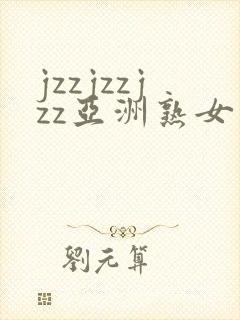 jzzjzzj
zz亞洲熟女
劉元算